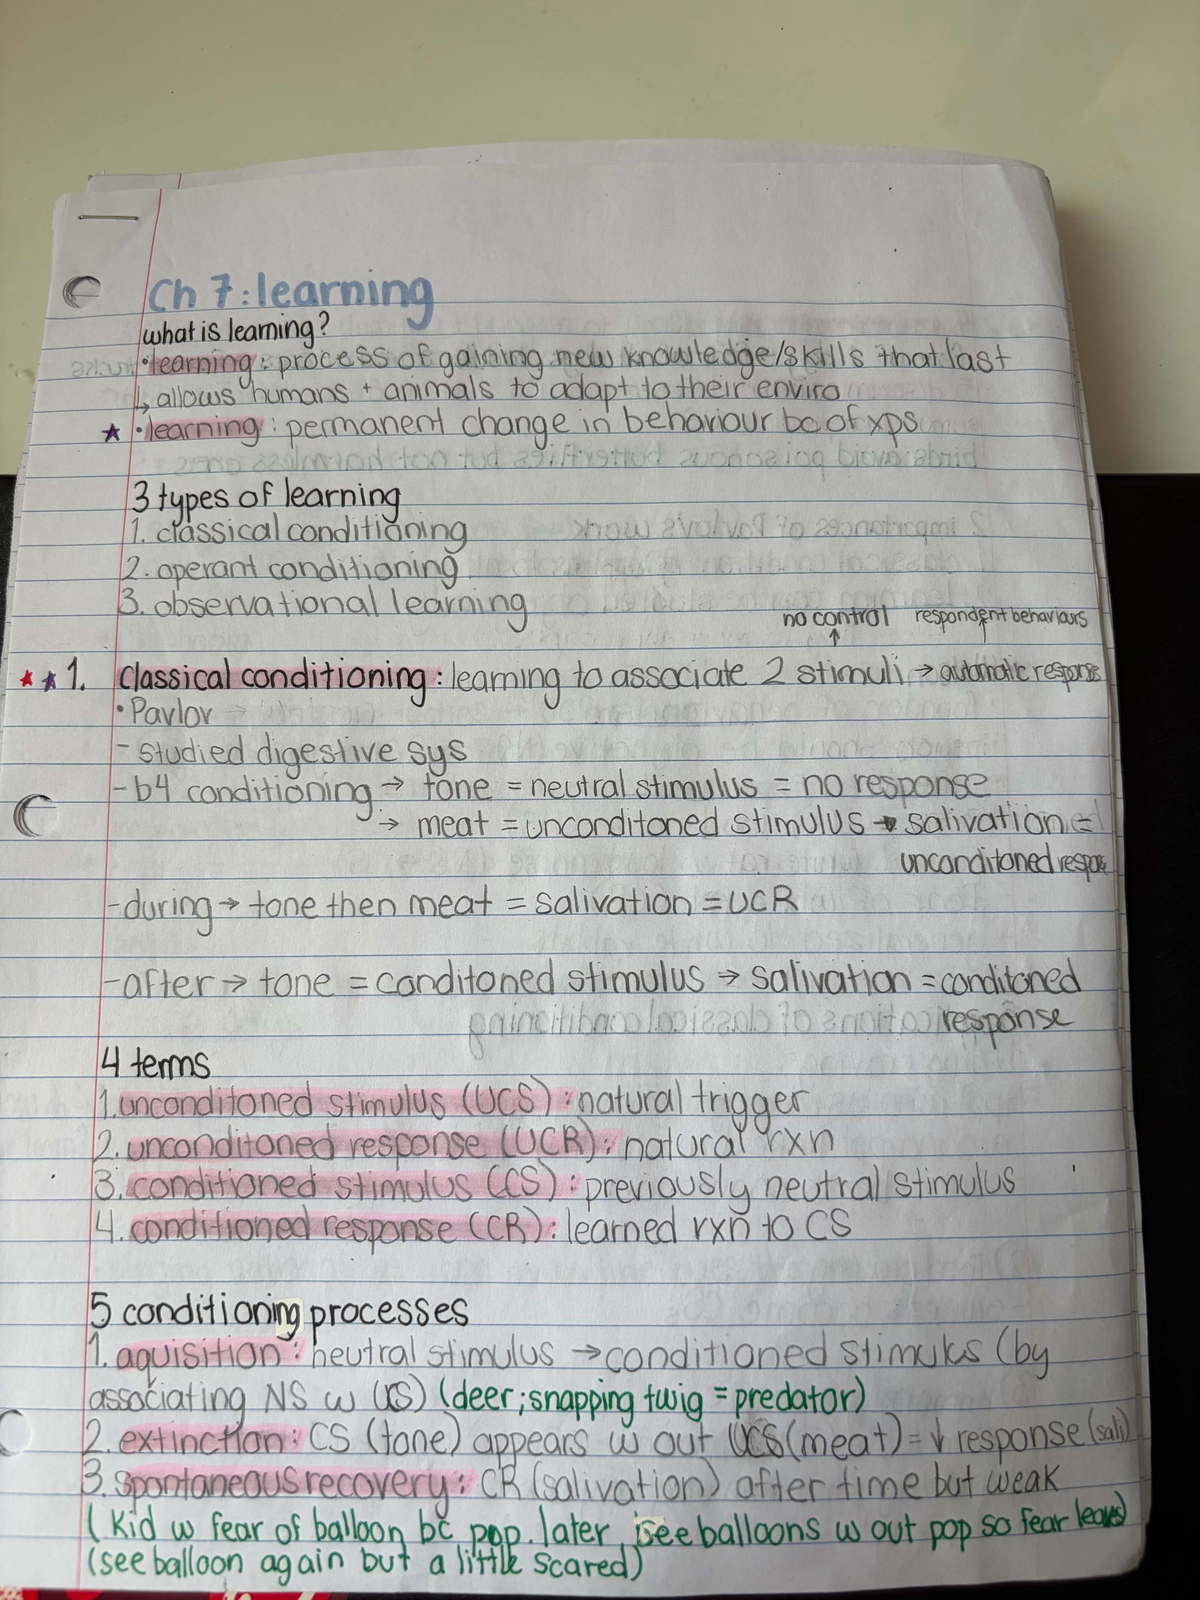 Ch 7: learning
what is learning?
• learning: process of gaining new knowledge/skills that last
↳ allows humans + animals to adapt to their enviro
★ • learning: permanent change in behaviour bc of xps
3 types of learning
1. classical conditioning
2. operant conditioning
3. observational learning
no control respondent behaviours
★ ★ 1. Classical conditioning: learning to associate 2 stimuli → automatic response
• Pavlov
- studied digestive sys
- b4 conditioning → tone = neutral stimulus = no response
→ meat = unconditoned stimulus → salivation =
unconditoned
- during → tone then meat = salivation = UCR
- after → tone = conditoned stimulus → salivation = conditoned
response
4 terms
1. unconditoned stimulus (UCS): natural trigger
2. unconditoned response (UCR): natural rxn
3. conditioned stimulus (CS): previously neutral stimulus
4. conditioned response (CR): learned rxn to CS
5 conditioning processes
1. aquisition: neutral stimulus → conditioned (by
associating NS w UCS) (deer; snapping twig = predator)
2. extinction: CS (tone) appears w out UCS (meat) = ↓ response (sali)
3. spontaneous recovery: CR (salivation) after time but weak
(Kid w fear of balloon bc pop. later, see balloons w out pop so fear leaves)
(see balloon again but a little scared)